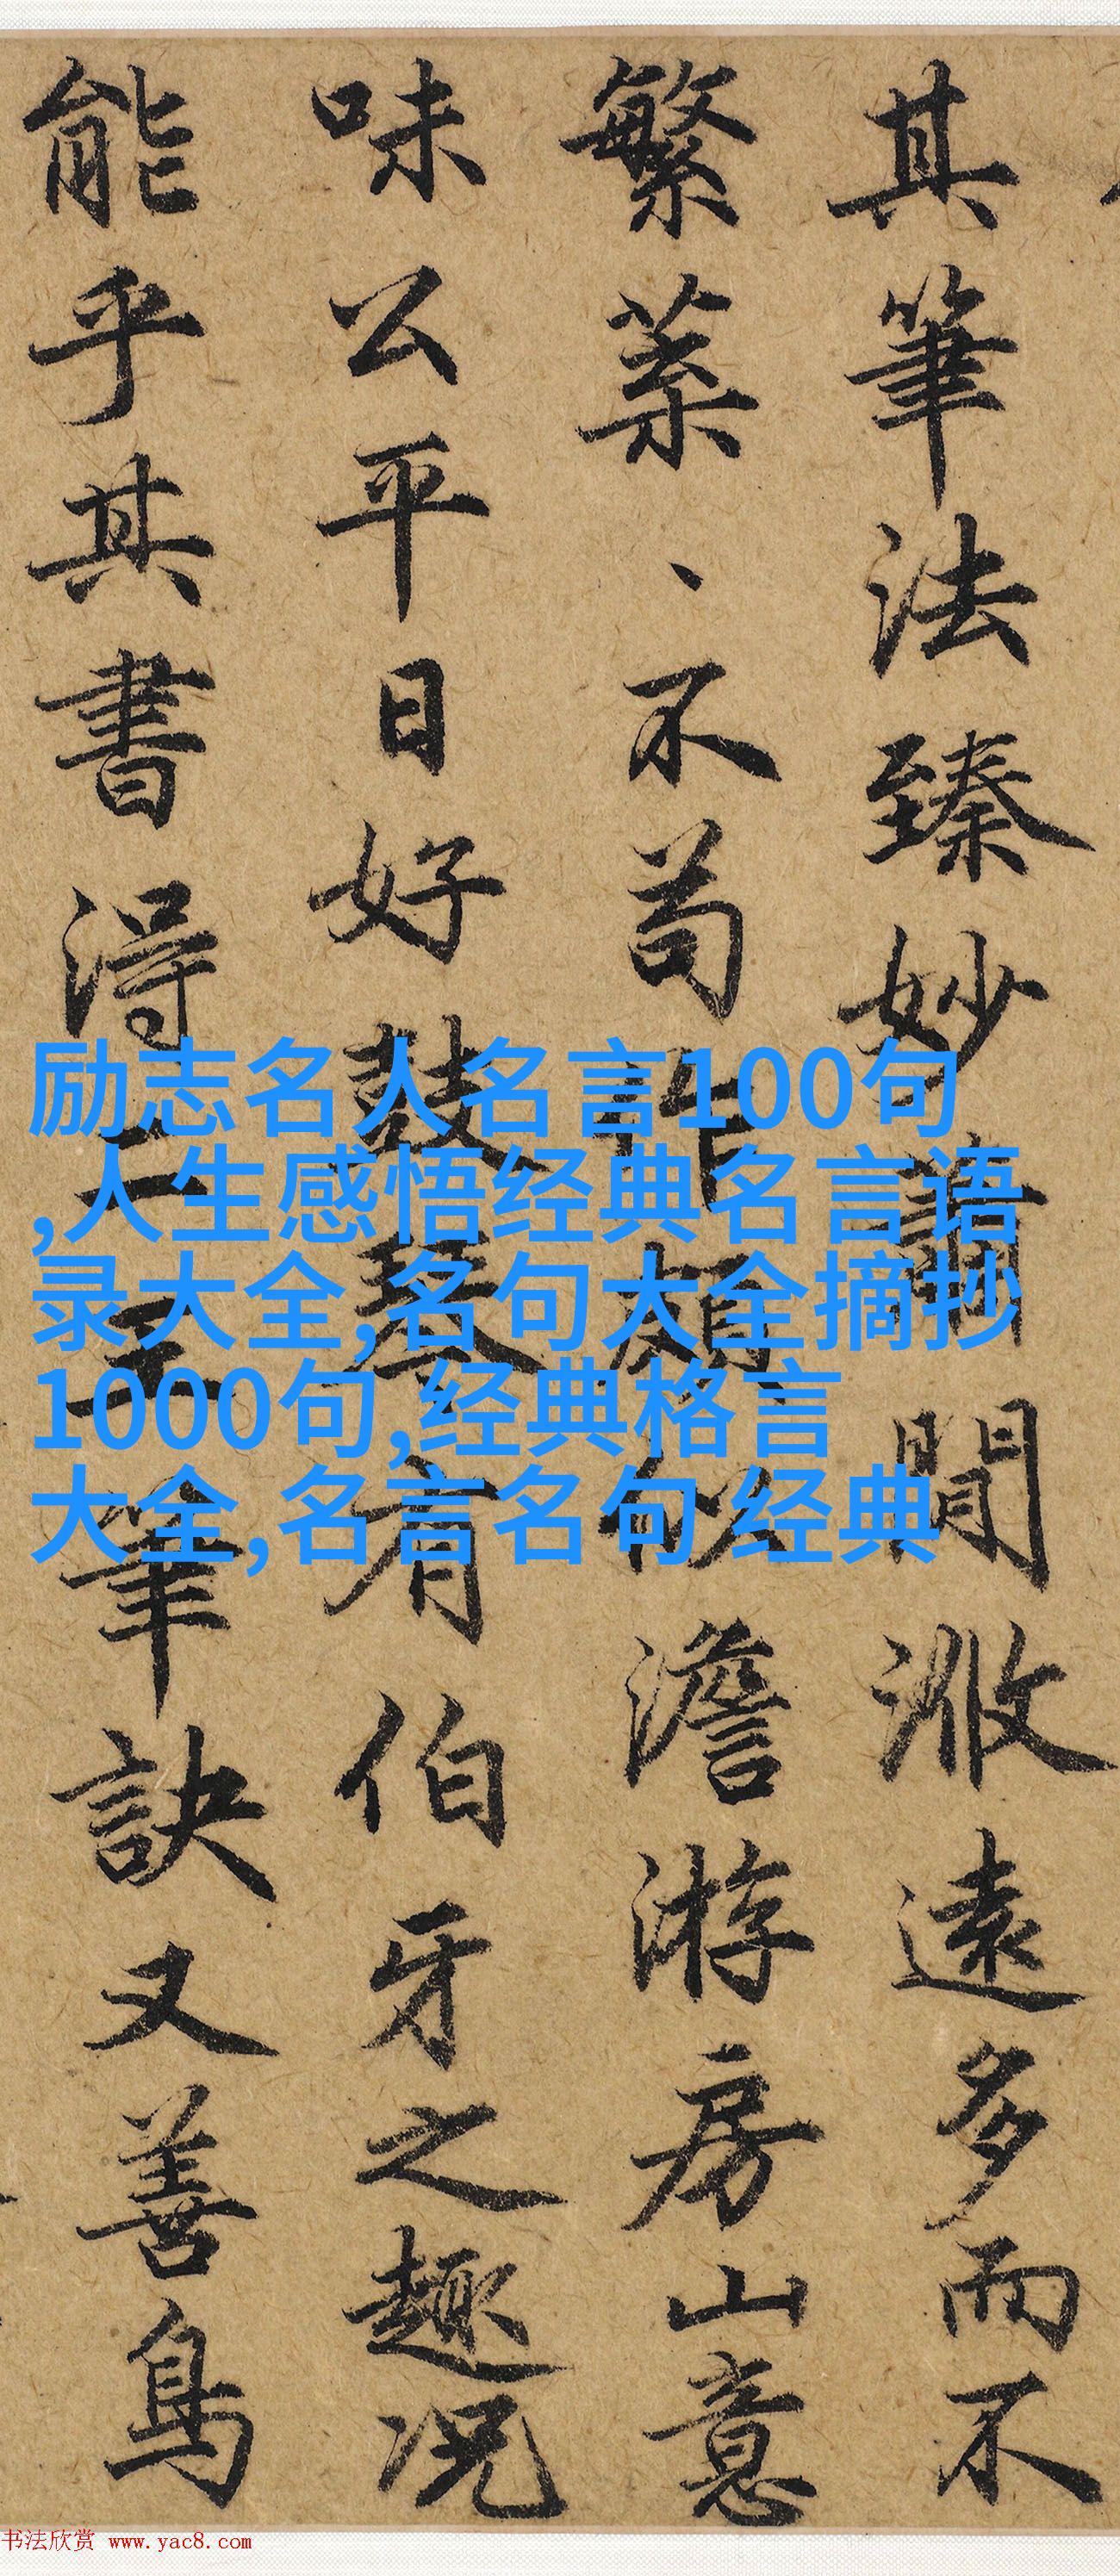 其筆法臻妙閒遠多而不
繁葉〻不苟作頗似澹游房山意
味公平日好鼓琴有伯牙之趣况
能乎其書得二王筆訣又善鳥
励志名人名言100句
,人生感悟经典名言语
录大全,名句大全摘抄
1000句,经典格言
大全,名言名句 经典
书法欣赏 www.yac8.com